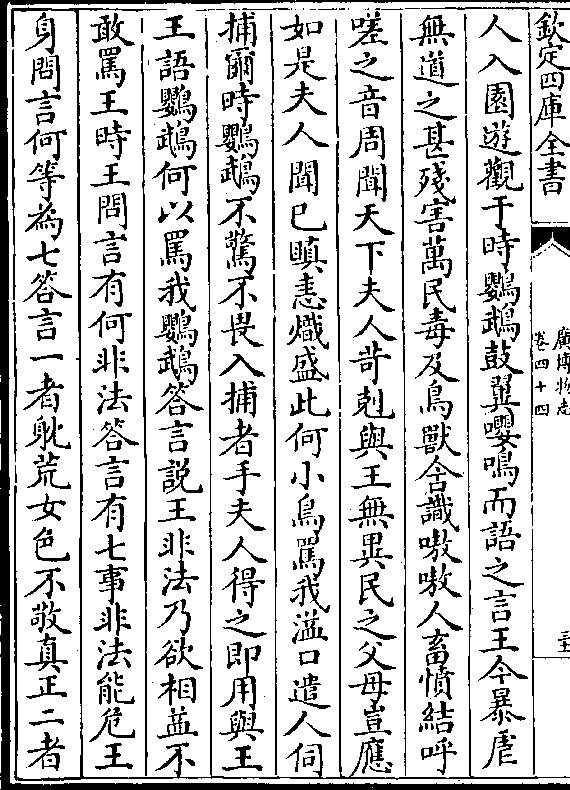 欽定四庫全書
廣博物志
卷四十四
人入園遊觀于時鸚鵡鼓翼嚶鳴而語之言王今暴虐
無道之甚殘害萬民毒及鳥獸含識嗷嗷人畜憤結呼
嗟之音周聞天下夫人苛剋與王無異民之父母豈應
如是夫人聞已瞋恚熾盛此何小鳥罵我溢口遣人伺
捕爾時鸚鵡不驚不畏入捕者手夫人得之即用與王
王語鸚鵡何以罵我鸚鵡答言説王非法乃欲相益不
敢罵王時王問言有何非法答言有七事非法能危王
身問言何等為七答言一者躭荒女色不敬真正二者